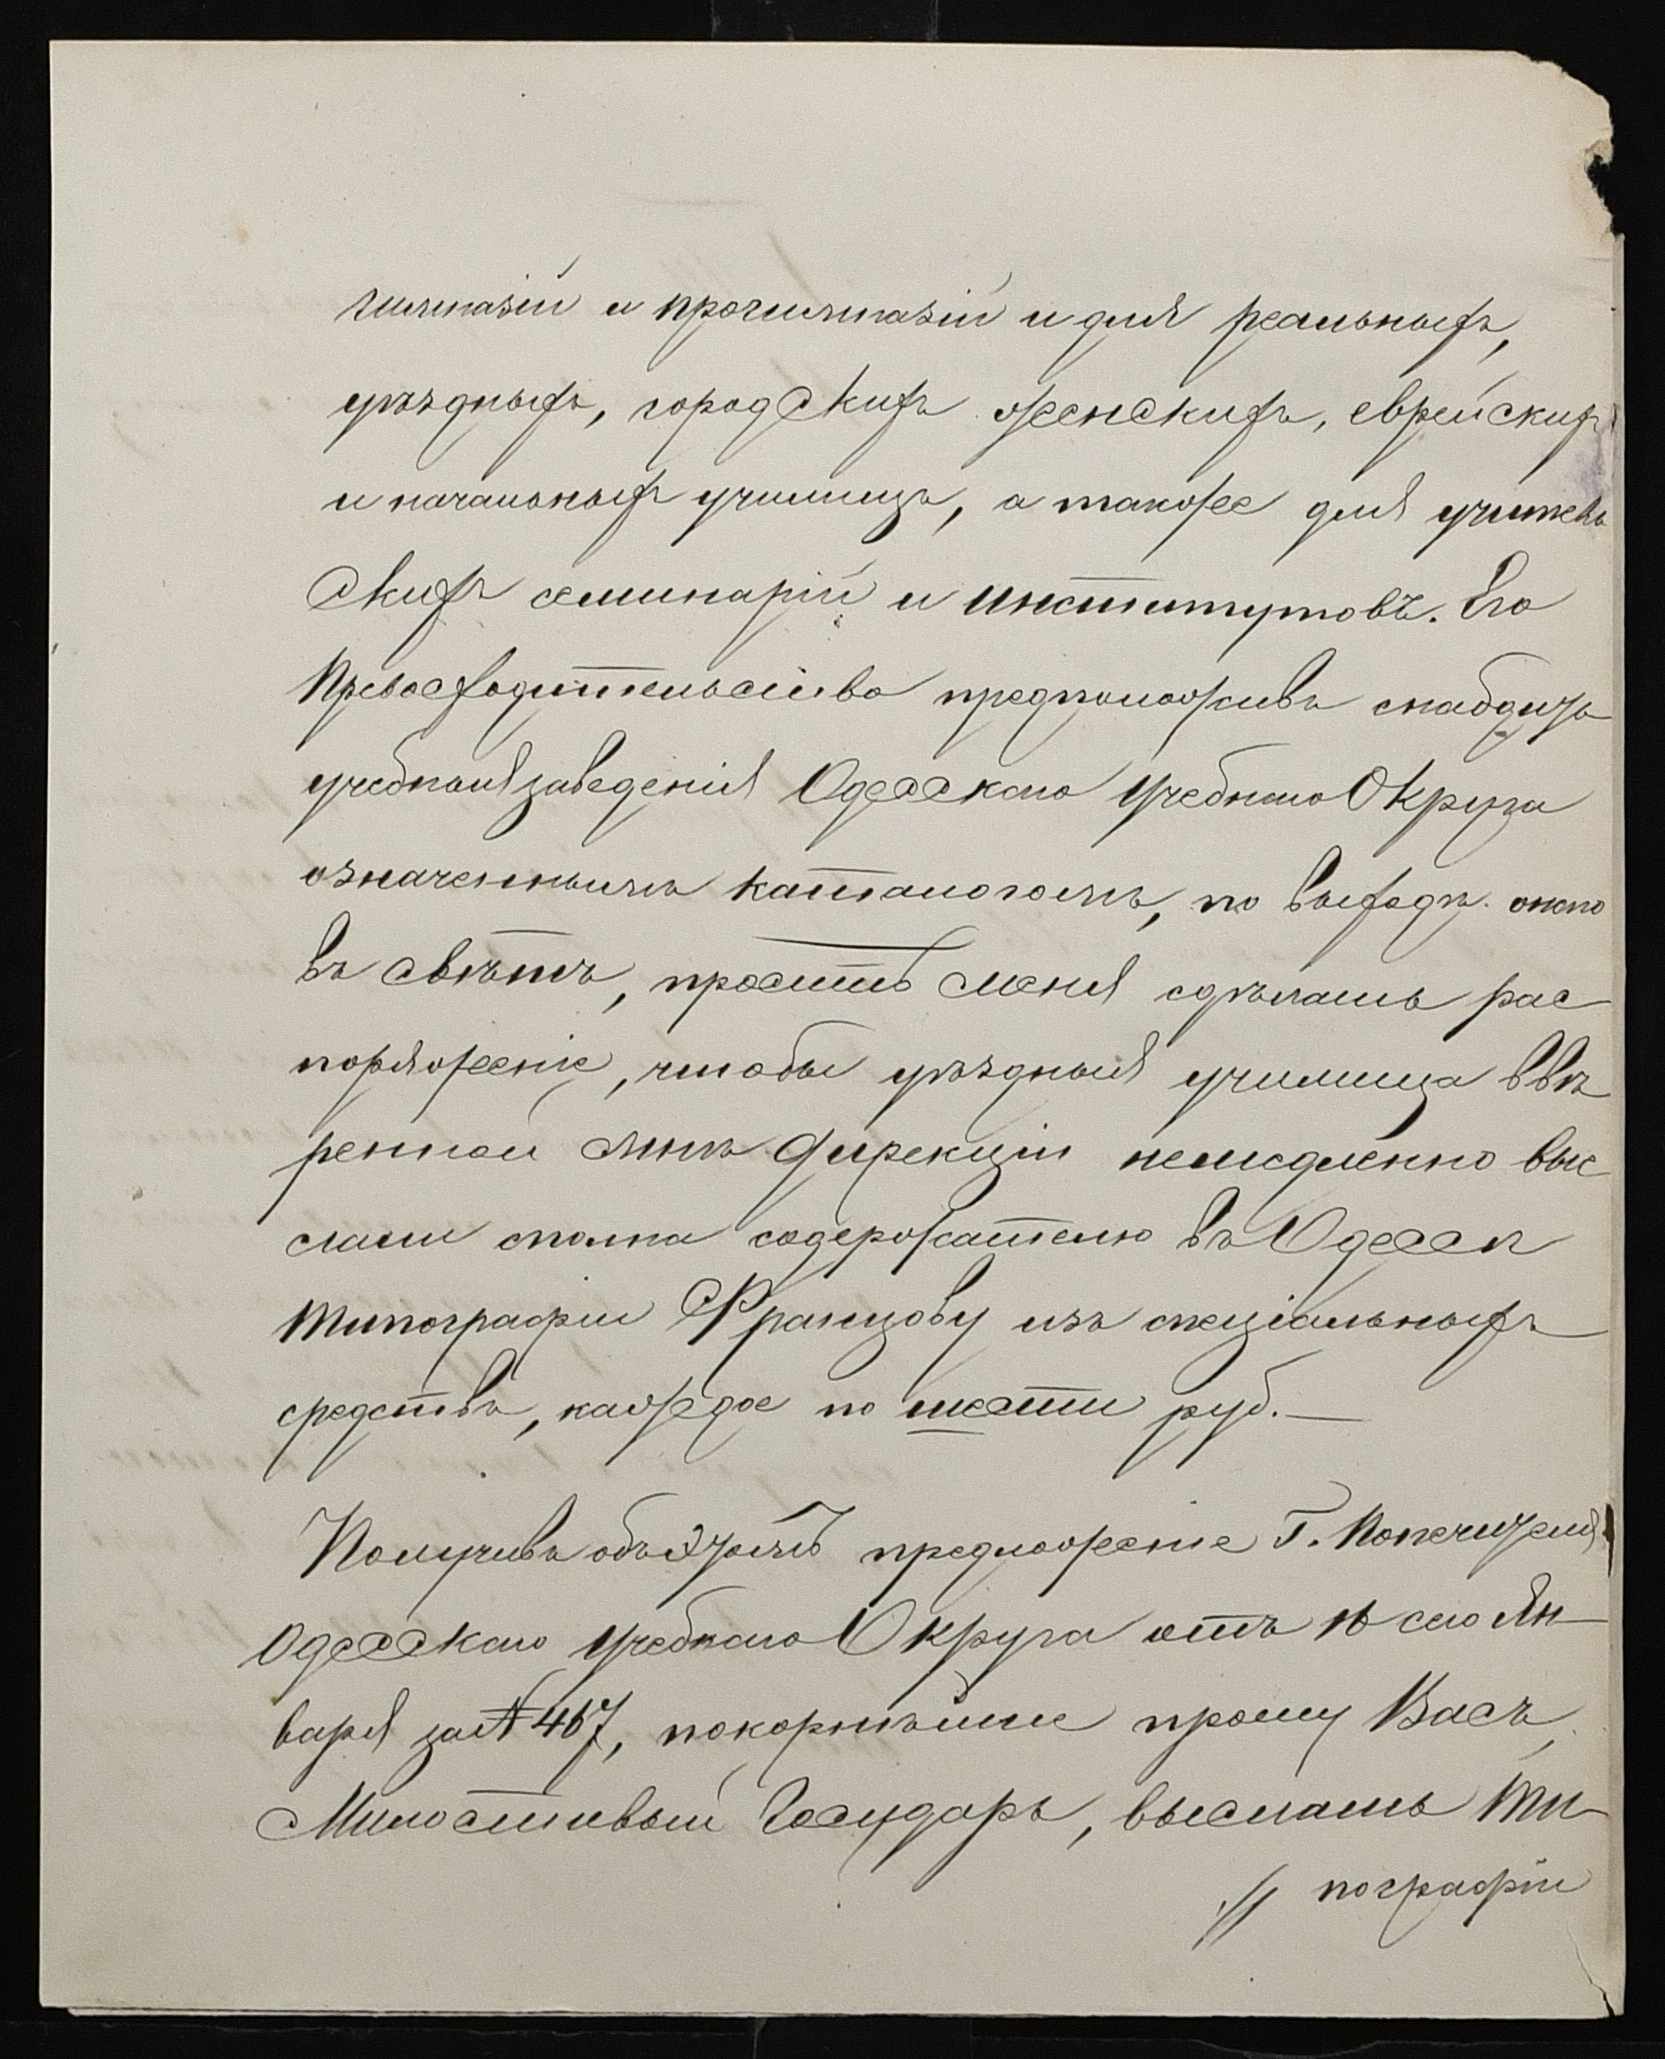 гимназій и прогимназій и для реальныхъ,
уѣздныхъ, городскихъ женскихъ, еврейскихъ
и начальныхъ училищъ, а также для учитель
скихъ семинарій и институтовъ. Его
Превосходительство предположивъ снабдить
учебныя заведенія Одесскаго Учебнаго Округа
означеннымъ каталогомъ, по выходѣ онаго
въ свѣтъ, проситъ меня сдѣлать рас
поряженіе, чтобы уѣздныя училища ввѣ
ренной мнѣ Дирекціи немедленно выс
лали сполна содержателю въ Одессѣ
типографіи Францову изъ спеціальныхъ
средствъ, каждое по шести руб.—
Получивъ объ этомъ предложеніе Г. Попечителя
Одесскаго Учебнаго Округа отъ 16 сего Ян-
варя за № 467, покорнѣйше прошу Васъ,
Милостивый Государь, выслать ти-
// пографіи